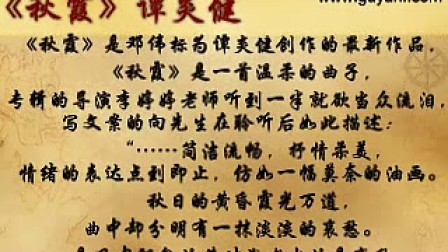 www.guyanfi.com
《秋霞》谭炎健
《秋霞》是邓伟标为谭炎健创作的最新作品，
《秋霞》是一首温柔的曲子，
专辑的导演李婷婷老师听到一半就欲当众流泪，
写文案的向先生在聆听后如此描述：
“……简洁流畅，抒情柔美，
情绪的表达点到即止，仿如一幅莫奈的油画。
秋日的黄昏霞光万道，
曲中却分明有一抹淡淡的哀愁。